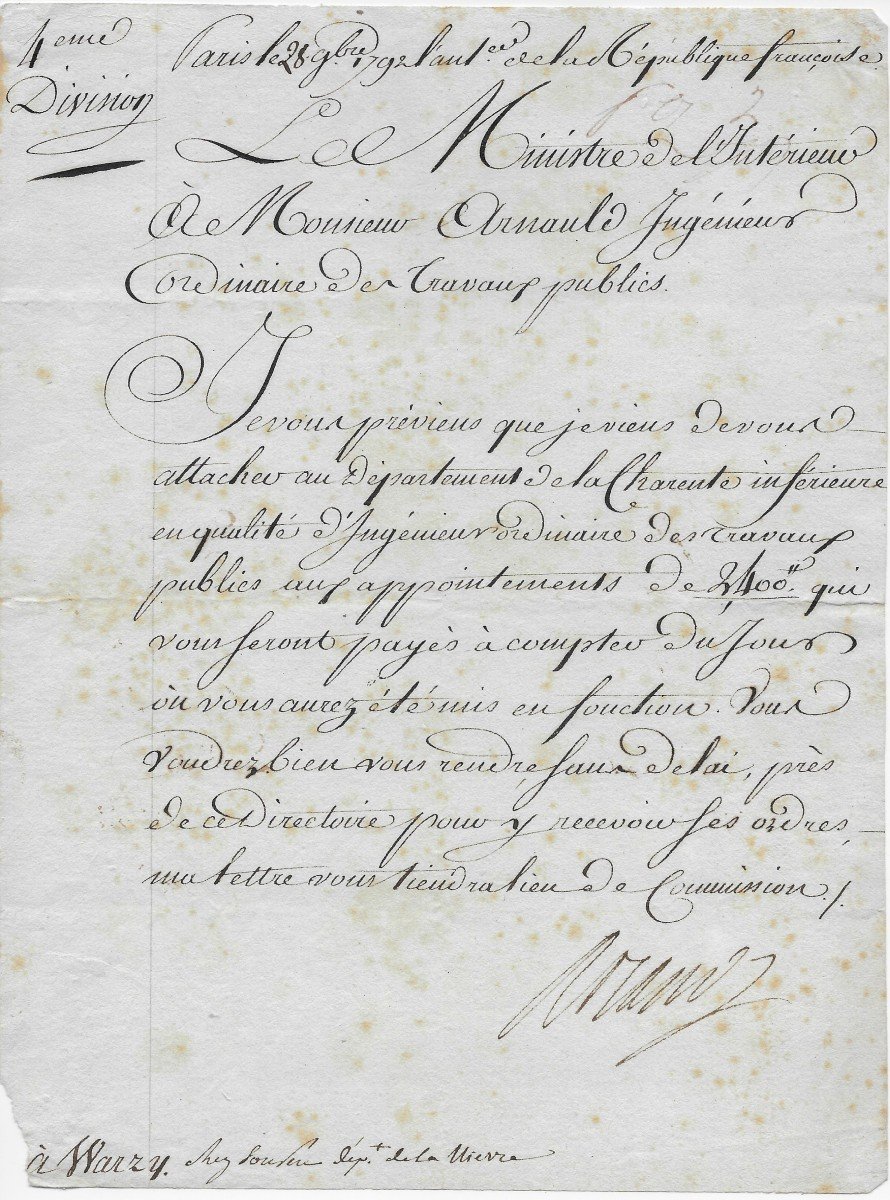 4eme
Division
Paris le 28 9bre 1792 l'an 1er de la République françoise.
Le Ministre de l'Intérieur
À Monsieur Arnauld Ingénieur
Ordinaire des Travaux publics.
Je vous préviens que je viens de vous
attacher au Département de la Charente inférieure
en qualité d'Ingénieur ordinaire des travaux
publics aux appointements de 2,400tt qui
vous seront payés à compter du Jour
où vous aurez été mis en fonction. Vous
Voudrez bien vous rendre, sans delai, près
de ce Directoire pour y recevoir ses ordres,
ma lettre vous tiendra lieu de Commission ./.
Roland
à Warzy. chez son père dépt. de la Nievre